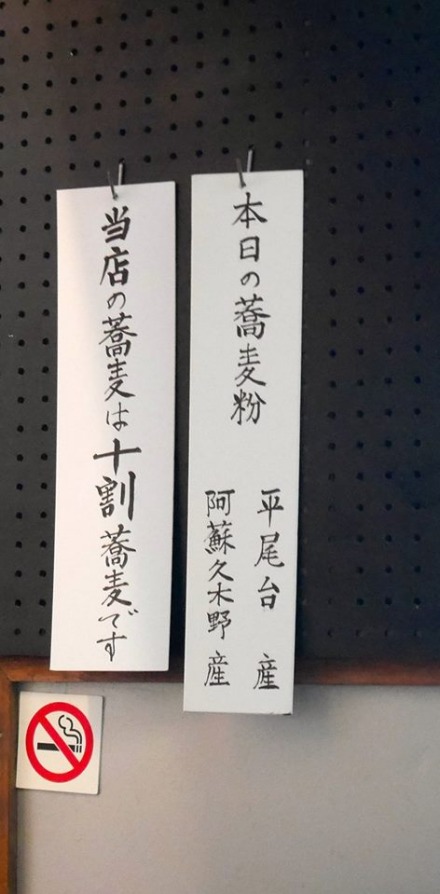 本日の蕎麦粉
平尾台 産
阿蘇久木野 産
当店の蕎麦は十割蕎麦です